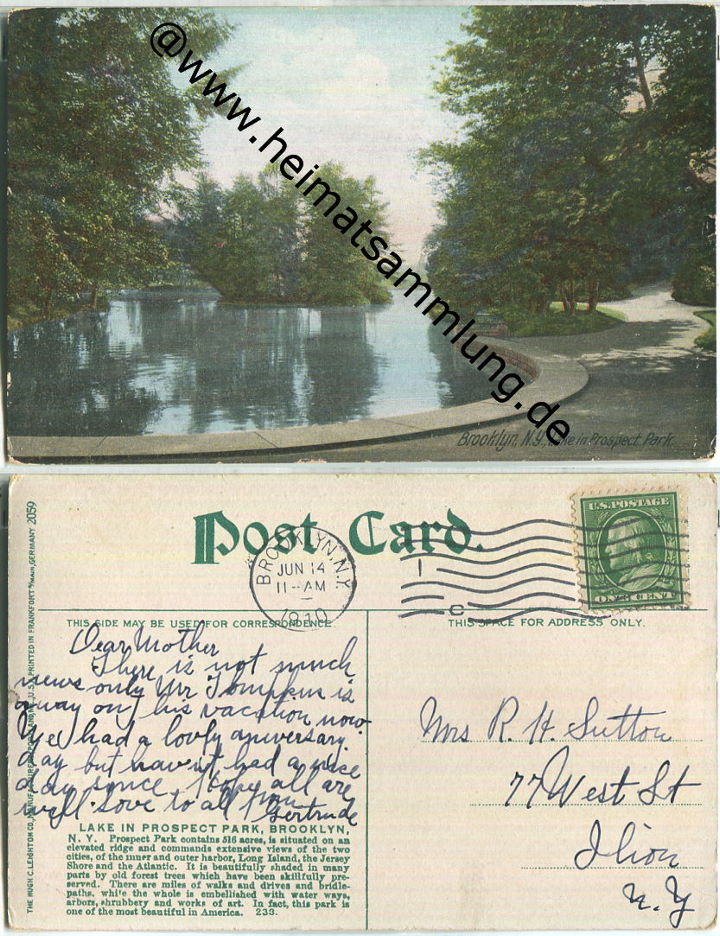 @www.heimatsammlung.de
Brooklyn, N.Y. Lake in Prospect Park.
Post Card.
BROOKLYN, N.Y.
JUN 14
11-AM
1910
1
C
U.S. POSTAGE
ONE CENT
THIS SIDE MAY BE USED FOR CORRESPONDENCE
THIS SPACE FOR ADDRESS ONLY.
THE HUGH C. LEIGHTON CO., MANUFACTURERS, PORTLAND, ME., U.S.A. PRINTED IN FRANKFORT a/MAIN, GERMANY 2059
Dear Mother
There is not much
news only Mr Tompkins is
away on his vacation now
We had a lovly aniversary
day but havn't had a nice
day since I hope all are
well. Love to all from
Gertrude
LAKE IN PROSPECT PARK, BROOKLYN,
N. Y. Prospect Park contains 516 acres, is situated on an
elevated ridge and commands extensive views of the two
cities, of the inner and outer harbor, Long Island, the Jersey
Shore and the Atlantic. It is beautifully shaded in many
parts by old forest trees which have been skillfully pre-
served. There are miles of walks and drives and bridle-
paths, while the whole is embellished with water ways,
arbors, shrubbery and works of art. In fact, this park is
one of the most beautiful in America. 233.
Mrs R. H. Sutton
77 West St
Ilion
N.Y